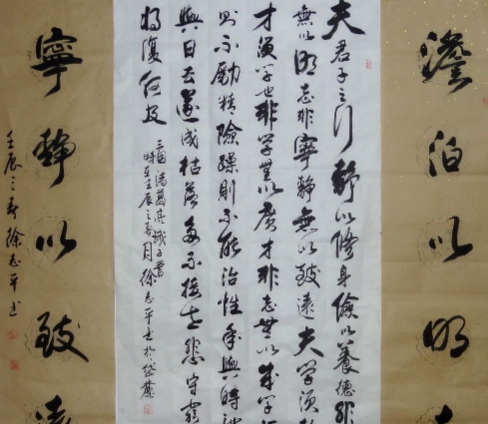 澹泊以明志
夫君子之行静以修身儉以養德非
無以明志非寧静無以致遠夫学須
才須学也非学無以廣才非志無以成学
則不励精險躁則不能治性年與時
與日去遂成枯落多不接世悲守窮
将復何及
三国諸葛亮誡子書
時在壬辰之春月徐志平书於
寧静以致遠
壬辰之春徐志平书